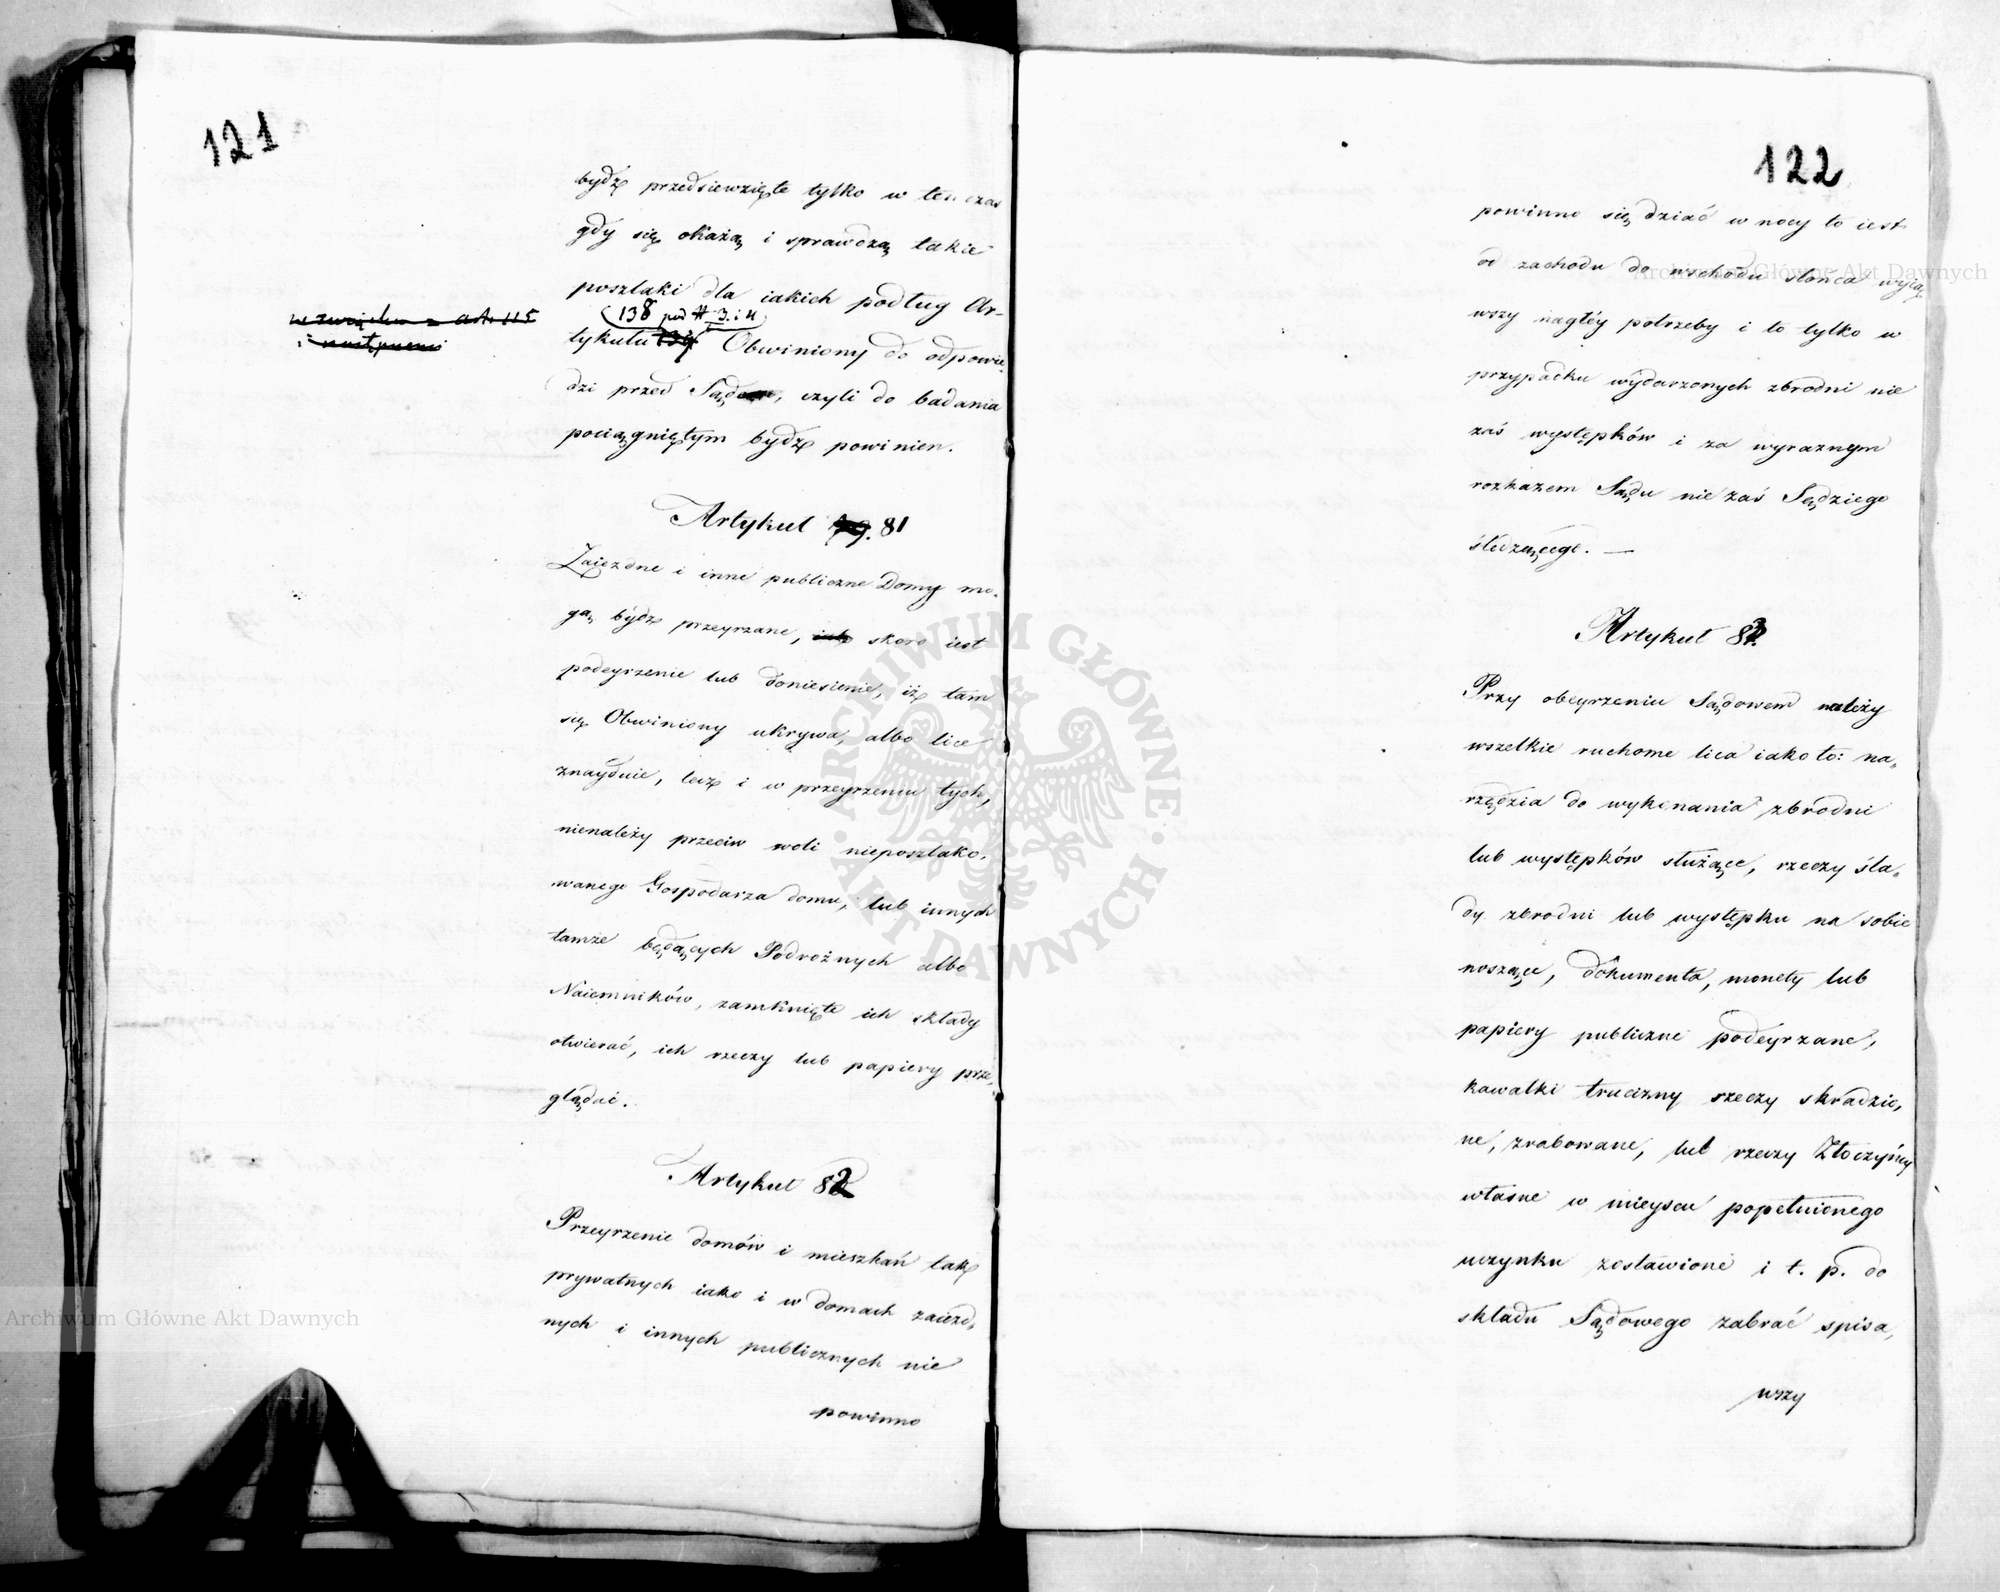 121
bydź przedsiewzięte tylko w ten czas
gdy się okażą i sprawdzą takie
poszlaki dla iakich podług Ar-
(138 pod # 3. i 4)
w związku z art. 115
i następnemi
tykułu 139 Obwiniony do odpowie-
dzi przed Sądem, czyli do badania
pociągniętym bydź powinien.
Artykuł 81
Zaiezdne i inne publiczne Domy mo-
gą bydź przeyrzane, iak skoro iest
podeyrzenie lub doniesienie, iż tam
się Obwiniony ukrywa, albo lice
znayduie, lecz i w przeyrzeniu tych,
nienależy przeciw woli nieposzlako-
wanego Gospodarza domu, lub innych
tamże będących Podrożnych albo
Naiemników, zamknięte ich składy
otwierać, ich rzeczy lub papiery prze-
glądać.
Artykuł 82
Przeyrzenie domów i mieszkań tak
prywatnych iako i w domach zaiezd-
nych i innych publicznych nie
powinno
122
powinno się dziać w nocy to iest
od zachodu do wschodu słońca wyią-
wszy nagłéy potrzeby i to tylko w
przypadku wydarzonych zbrodni nie
zaś występków i za wyraznym
rozkazem Sądu nie zaś Sędziego
śledzącego. —
Artykuł 83.
Przy obeyrzeniu Sądowem należy
wszelkie ruchome lica iako to: na-
rzędzia do wykonania zbrodni
lub występków służące, rzeczy śla-
dy zbrodni lub występku na sobie
noszące, dokumenta, monety lub
papiery publiczne podeyrzane,
kawałki trucizny rzeczy skradzio-
ne, zrabowane, lub rzeczy Złoczyńcy
własne w mieyscu popełnionego
uczynku zostawione i t. p. do
składu Sądowego zabrać spisa-
wszy
Archiwum Główne Akt Dawnych
Archiwum Główne Akt Dawnych
ARCHIWUM GŁÓWNE AKT DAWNYCH